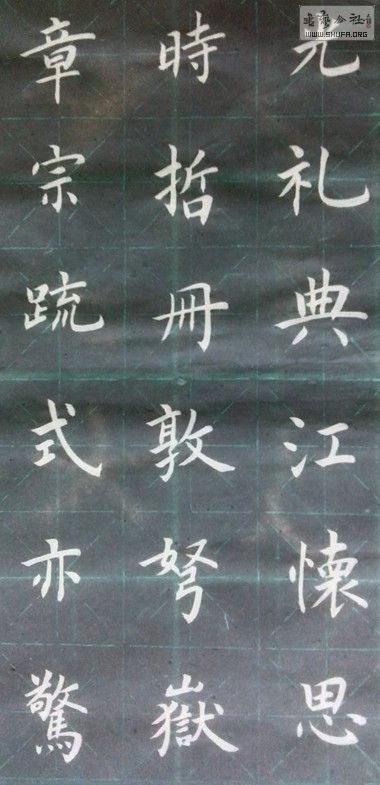 元礼典江懐思
時哲冊敦弩嶽
章宗疏式亦驚
書藝公社
WWW.SHUFA.ORG